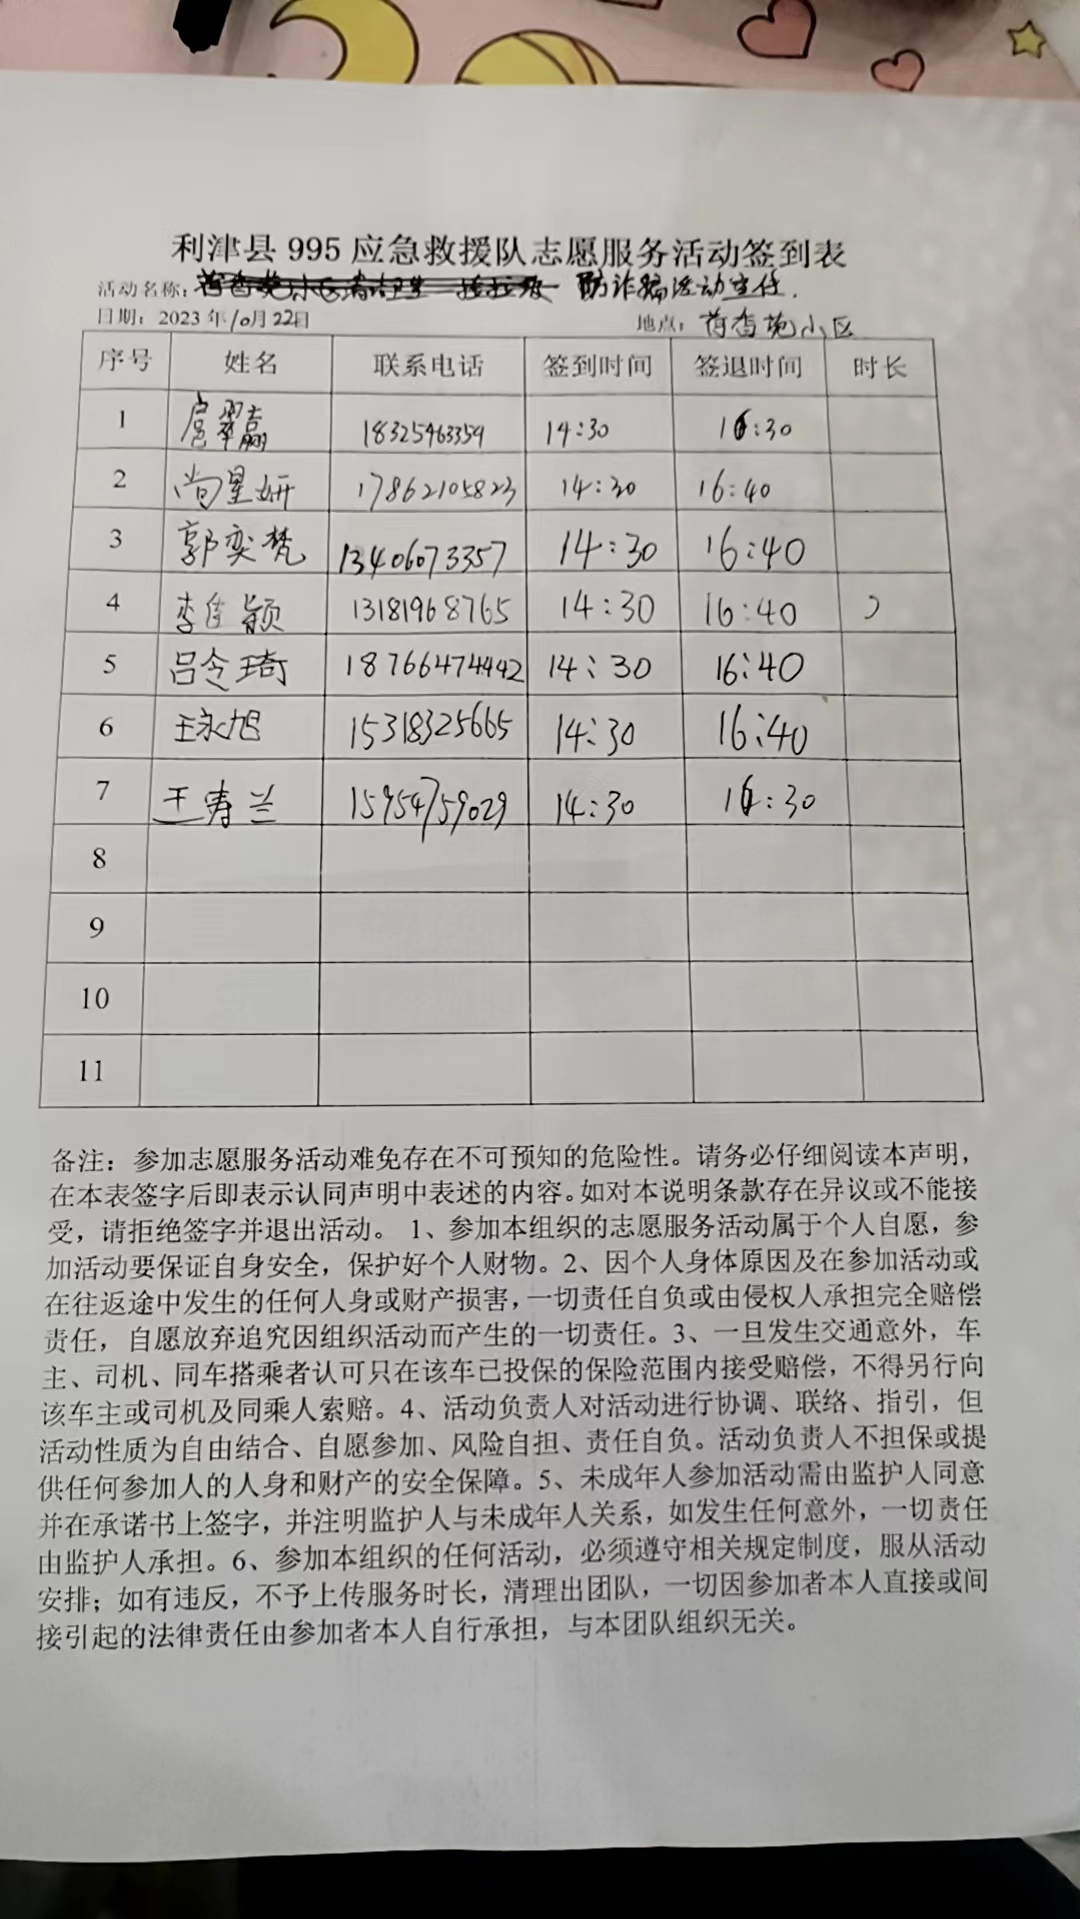 利津县995应急救援队志愿服务活动签到表
活动名称： 防诈骗活动宣传.
日期：2023年10月22日 地点：荷香苑小区
序号 姓名 联系电话 签到时间 签退时间 时长
1 扈翠赢 18325463359 14:30 16:30
2 尚星妍 17862105823 14:30 16:40
3 郭奕梵 13406073357 14:30 16:40
4 李佳颖 13181968765 14:30 16:40
5 吕令琦 18766474442 14:30 16:40
6 王永旭 15318325665 14:30 16:40
7 王寿兰 15954759029 14:30 16:30
8
9
10
11
备注：参加志愿服务活动难免存在不可预知的危险性。请务必仔细阅读本声明，
在本表签字后即表示认同声明中表述的内容。如对本说明条款存在异议或不能接
受，请拒绝签字并退出活动。 1、参加本组织的志愿服务活动属于个人自愿，参
加活动要保证自身安全，保护好个人财物。2、因个人身体原因及在参加活动或
在往返途中发生的任何人身或财产损害，一切责任自负或由侵权人承担完全赔偿
责任，自愿放弃追究因组织活动而产生的一切责任。3、一旦发生交通意外，车
主、司机、同车搭乘者认可只在该车已投保的保险范围内接受赔偿，不得另行向
该车主或司机及同乘人索赔。4、活动负责人对活动进行协调、联络、指引，但
活动性质为自由结合、自愿参加、风险自担、责任自负。活动负责人不担保或提
供任何参加人的人身和财产的安全保障。5、未成年人参加活动需由监护人同意
并在承诺书上签字，并注明监护人与未成年人关系，如发生任何意外，一切责任
由监护人承担。6、参加本组织的任何活动，必须遵守相关规定制度，服从活动
安排；如有违反，不予上传服务时长，清理出团队，一切因参加者本人直接或间
接引起的法律责任由参加者本人自行承担，与本团队组织无关。